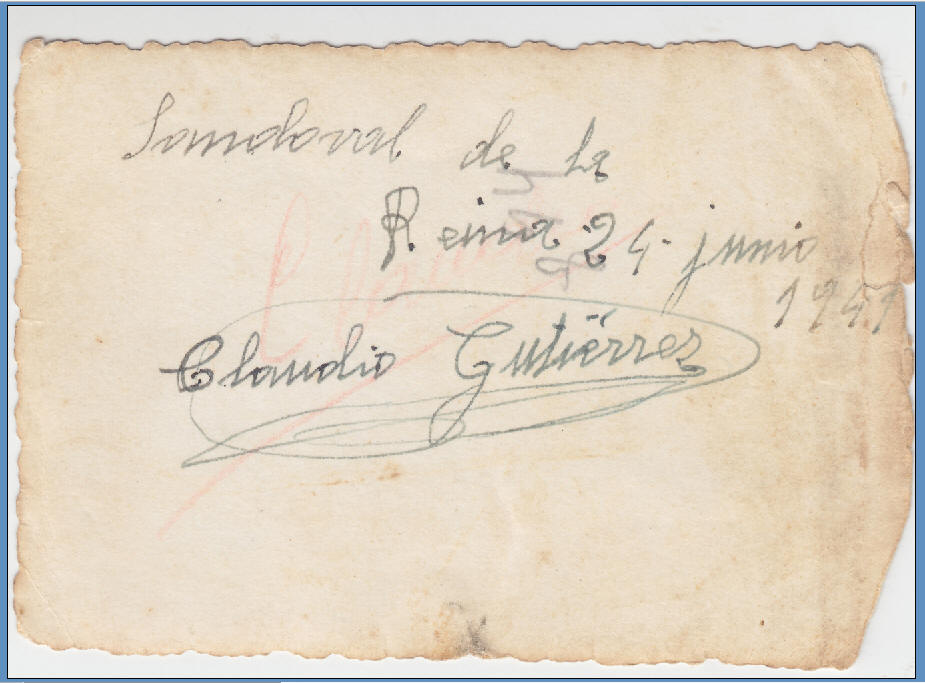 Sandoval de la
Reina 24-junio
1951
Claudio Gutiérrez